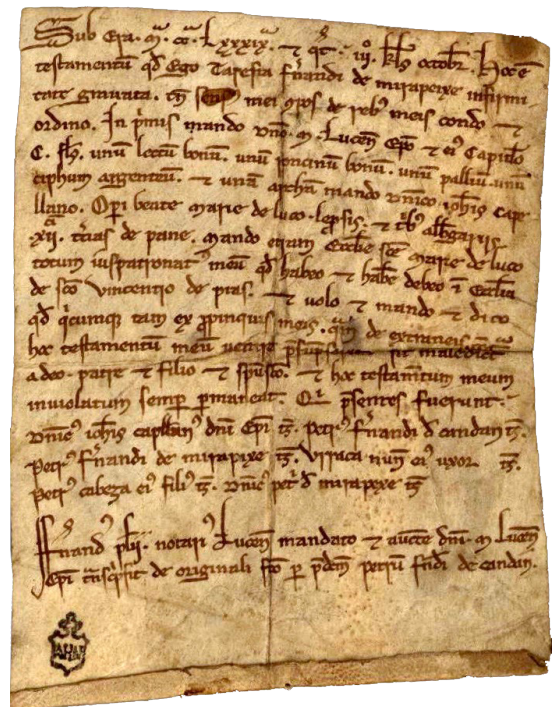 Sub Era. Mª. CCª. Lxxxixª. et qt. iiiº. kls octobr. Hoc ē
testamentū qd Ego Tarefia Fr̄nandi de mirapeixe infirmi
tate gravata. mei de reb9 meis condo et
ordino. In p̄mis mando dn̄o. M. Lucen̄ Ep̄o et ei9 Capitulo
C. sls. unū lectū bonū. unū roncinū bonū. unū palliū. unū
ciphum argenteū. et unā archā mando dn̄ico Ioh̄is Cape
llano. Op̄i beate Marie de luco. lep̄sis. et alb̄gariis
xii. de pane. Mando etiam Eccl̄ie sc̄e Marie de luco
totum ius patronat9 meū qd habeo et hab̄e debeo ī Eccl̄ia
de sc̄o vincentio de pias. et uolo et mando et dico
qd q̄icumque tam ex p̄pinquis meis. q̄m de extraneis
hoc testamentū meū venire sit maledict9
a deo. patre et filio et sp̄usc̄o. et hoc testam̄tum meum
inviolatum semp p̄maneat. Qi p̄sentes fuerunt.
dn̄ic9 ioh̄is capllan9 dn̄i Ep̄i t̄s. Petr9 Fr̄nandi d̄ candan̄ t̄s.
Petr9 Fr̄nandi de mirapeixe t̄s. Vrraca nun̄ ei9 uxor t̄s.
Petr9 cabeza ei9 fili9 t̄s. dn̄ic9 pet̄ d̄ mirapeixe t̄s
Fr̄nand9 pl̄ii. notari9 Lucen̄ mandato et auct̄e dn̄i. M Lucen̄
Ep̄i t̄nsc̄psit de originali f̄co p p̄dc̄m petrū fn̄di de candan̄.